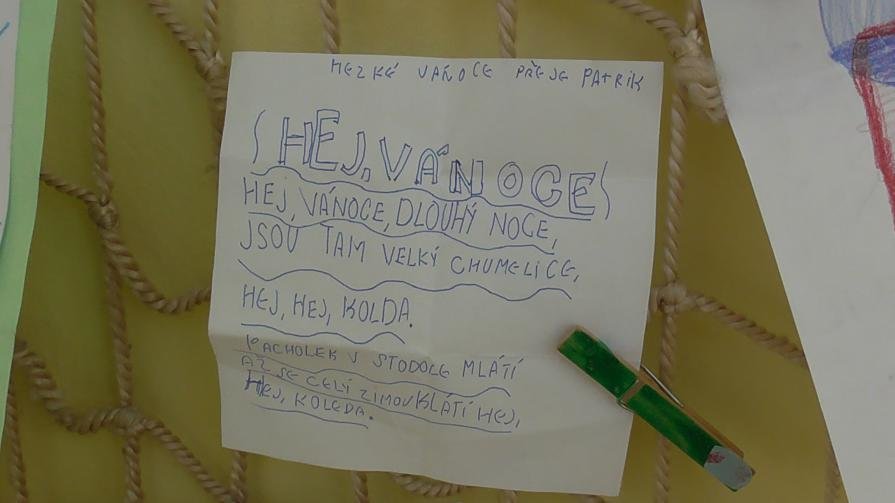 HEZKÉ VÁNOCE PŘEJE PATRIK
HEJ, VÁNOCE
HEJ, VÁNOCE, DLOUHÝ NOCE,
JSOU TAM VELKÝ CHUMELICE,
HEJ, HEJ, KOLDA.
PACHOLEK V STODOLE MLÁTÍ
AŽ SE CELÝ ZIMOU KLÁTÍ HEJ,
HEJ, KOLEDA.